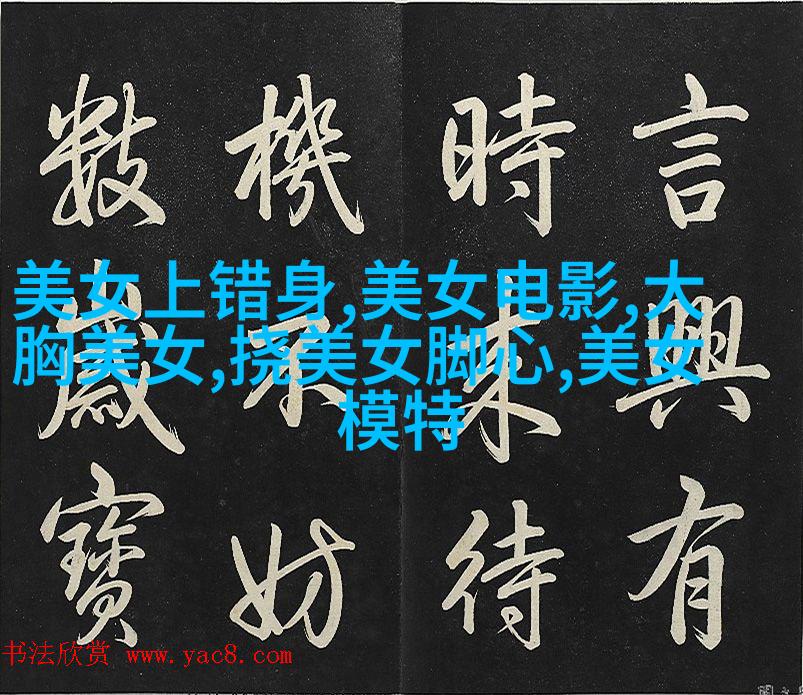 言興有
時来待
機不妨
數歲寶
美女上错身,美女电影,大
胸美女,挠美女脚心,美女
模特
书法欣赏 www.yac8.com